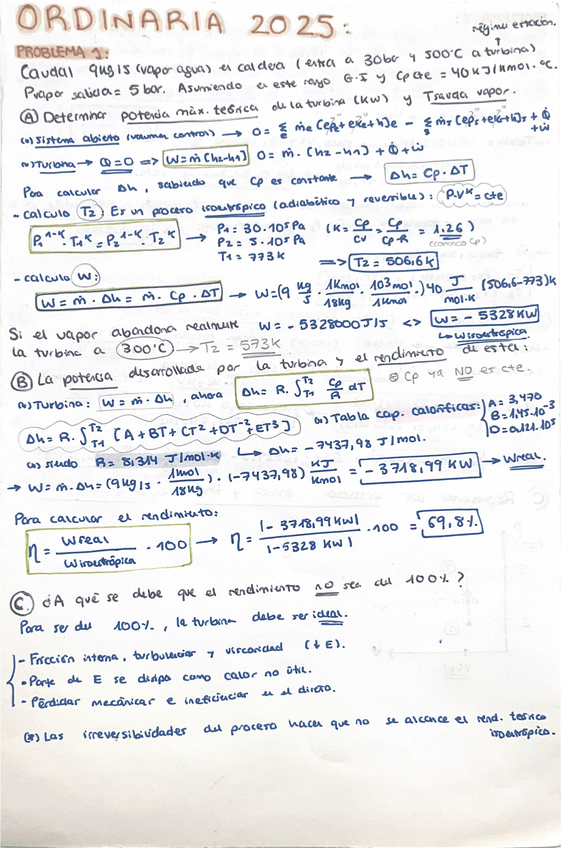 ORDINARIA 2025:
régimen estacion.
PROBLEMA 1:
Caudal 9kg/s (vapor agua) en caldera (entra a 30bar y 500°C a turbina)
Pvapor salida = 5 bar. Asumiendo en este rango G.I y Cp cte = 40 KJ/Kmol·°C.
(A) Determinar potencia máx. teórica de la turbina (KW) y Tsalida vapor.
(*) Sistema abierto (volumen control) → 0 = Σe ṁe (eps + eke + h)e - Σs ṁs (eps + eks + h)s + Q̇ + ẇ
(*) Turbina → Q̇ = 0 => W = ṁ (h2-h1) 0 = ṁ · (h2-h1) + Q̇ + ẇ
Para calcular Δh, sabiendo que Cp es constante → Δh = Cp · ΔT
- calculo T2) Es un proceso isoentrópico (adiabático y reversible): P·V^K = cte
P1^1-K · T1^K = P2^1-K · T2^K → P1 = 30·10⁵ Pa (K = Cp/Cv = Cp/Cp-R = 1.26)
P2 = 5·10⁵ Pa (conozco Cp)
T1 = 773K => T2 = 506,6K
- calculo W:
W = ṁ · Δh = ṁ · Cp · ΔT → W = (9 kg/s · 1Kmol/18kg · 10³mol/1Kmol) · 40 J/mol·K (506,6-773)K
W = - 5328000 J/s <> W = - 5328 KW
↳ Wisoentrópica
Si el vapor abandona realmente
la turbina a 300°C → T2 = 573K
(B) La potencia desarrollada por la turbina y el rendimiento de esta:
⊛ Cp ya NO es cte.
(*) Turbina: W = ṁ · Δh, ahora Δh = R · ∫T1 T2 Cp/R dT
Δh = R · ∫T1 T2 [A + BT + CT² + DT⁻² + ET³] (*) Tabla cap. caloríficas: A = 3,470
B = 1.45·10⁻³
D = 0.121·10⁵
(*) siendo R = 8,314 J/mol·K ↳ Δh = -7437,98 J/mol.
→ W = ṁ · Δh = (9kg/s · 1Kmol/18kg) · (-7437,98) KJ/Kmol = - 3718,99 KW → Wreal.
Para calcular el rendimiento:
η = Wreal/Wisoentrópica · 100 → η = |- 3718,99 KW|/|-5328 KW| · 100 = 69,8%
(C) ¿A qué se debe que el rendimiento no sea del 100%?
Para ser del 100%, la turbina debe ser ideal.
- Fricción interna, turbulencias y viscosidad (↓E).
- Parte de E se disipa como calor no útil.
- Pérdidas mecánicas e ineficiencias en el diseño.
(*) Las irreversibilidades del proceso hacen que no se alcance el rend. teórico
isoentrópico.